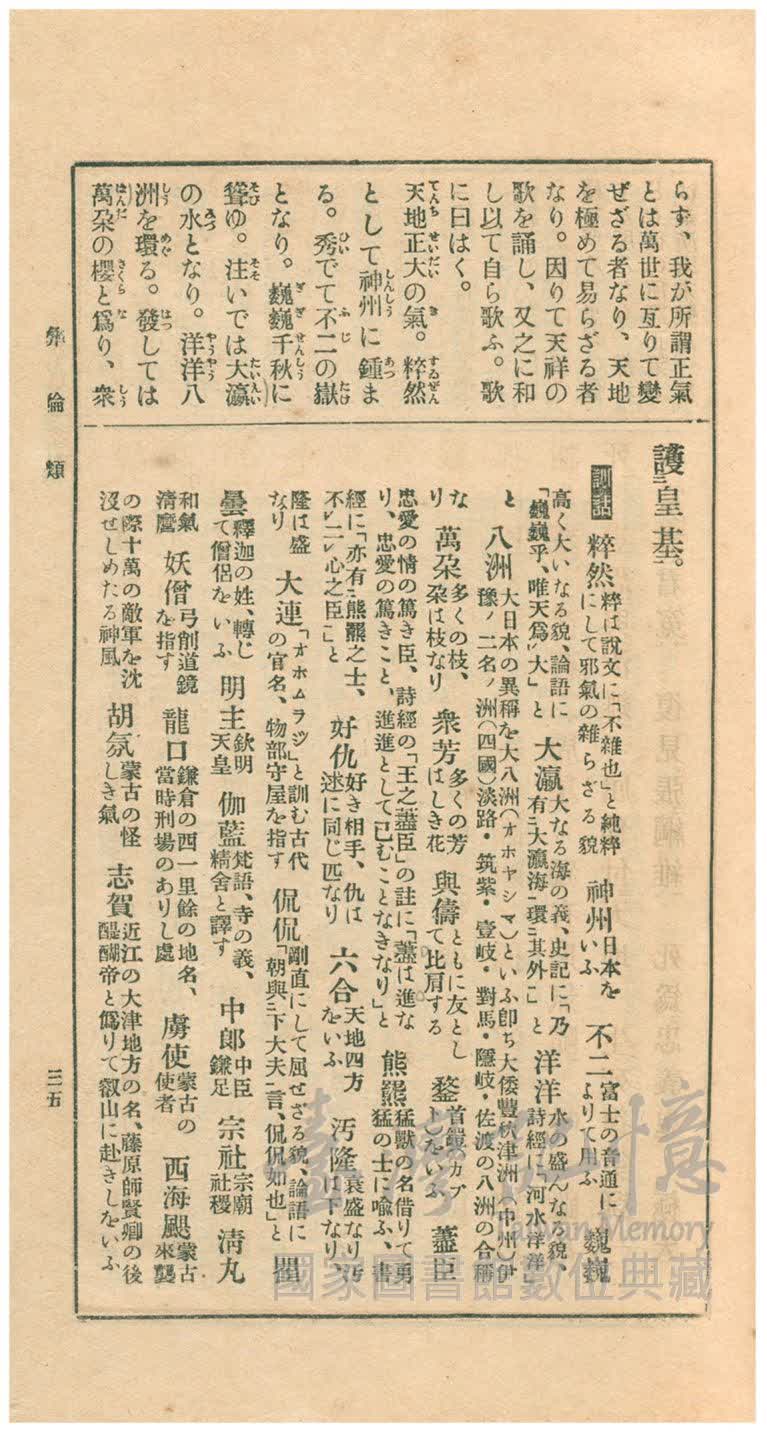 らず、我が所謂正氣
とは萬世に亙りて變
ぜざる者なり、天地
を極めて易らざる者
なり。因りて天祥の
歌を誦し、又之に和
し以て自ら歌ふ。歌
に曰はく。
天地正大の氣。粹然
として神州に鍾ま
る。秀でて不二の嶽
となり。巍巍千秋に
聳ゆ。注いでは大瀛
の水となり。洋洋八
洲を環る。發しては
萬朶の櫻と爲り、衆
護ニ皇基ー。
訓詁 粹然 粹は説文に「不雜也」と純粹にして邪氣の雜らざる貌 神州 日本をいふ 不二 富士の音通によりて用ふ 巍巍
高く大いなる貌、論語に「巍巍乎、唯天爲レ大」と 大瀛 大なる海の義、史記に「乃有ニ大瀛海ー環ニ其外ー」と 洋洋 水の盛んなる貌、詩經に「河水洋洋」
と 八洲 大日本の異稱を大八洲(オホヤシマ)といふ卽ち大倭豐秋津洲(中州)伊豫ノ二名ノ洲(四國)淡路・筑紫・壹岐・對馬・隱岐・佐渡の八洲の合稱
なり 萬朶 多くの枝、朶は枝なり 衆芳 多くの芳はしき花 與儔 ともに友として比肩する 鍪 首鎧(カブト)をいふ 藎臣
忠愛の情の篤き臣、詩經の「王之藎臣」の註に「藎は進なり、忠愛の篤きこと、進進として已むことなきなり」と 熊羆 猛獸の名借りて勇猛の士に喩ふ、書
經に「亦有ニ熊羆之士、不レ二レ心之臣ー」と 好仇 好き相手、仇は逑に同じ匹なり 六合 天地四方をいふ 汚隆 衰盛なり汚は下なり、
隆は盛なり 大連 「オホムラジ」と訓む古代の官名、物部守屋を指す 侃侃 剛直にして屈せざる貌、論語に「朝與ニ下大夫ー言、侃侃如也」と 瞿
曇 釋迦の姓、轉じて僧侶をいふ 明主 欽明天皇 伽藍 梵語、寺の義、精舍と譯す 中郎 中臣鎌足 宗社 宗廟社稷 淸丸
和氣淸麿 妖僧 弓削道鏡を指す 龍口 鎌倉の西一里餘の地名、當時刑場のありし處 虜使 蒙古の使者 西海颶 蒙古來襲
の際十萬の敵軍を沈沒せしめたる神風 胡氛 蒙古の怪しき氣 志賀 近江の大津地方の名、藤原師賢卿の後醍醐帝と僞りて叡山に赴きしをいふ
彝倫類
三五
臺灣記憶
Taiwan Memory
國家圖書館數位典藏